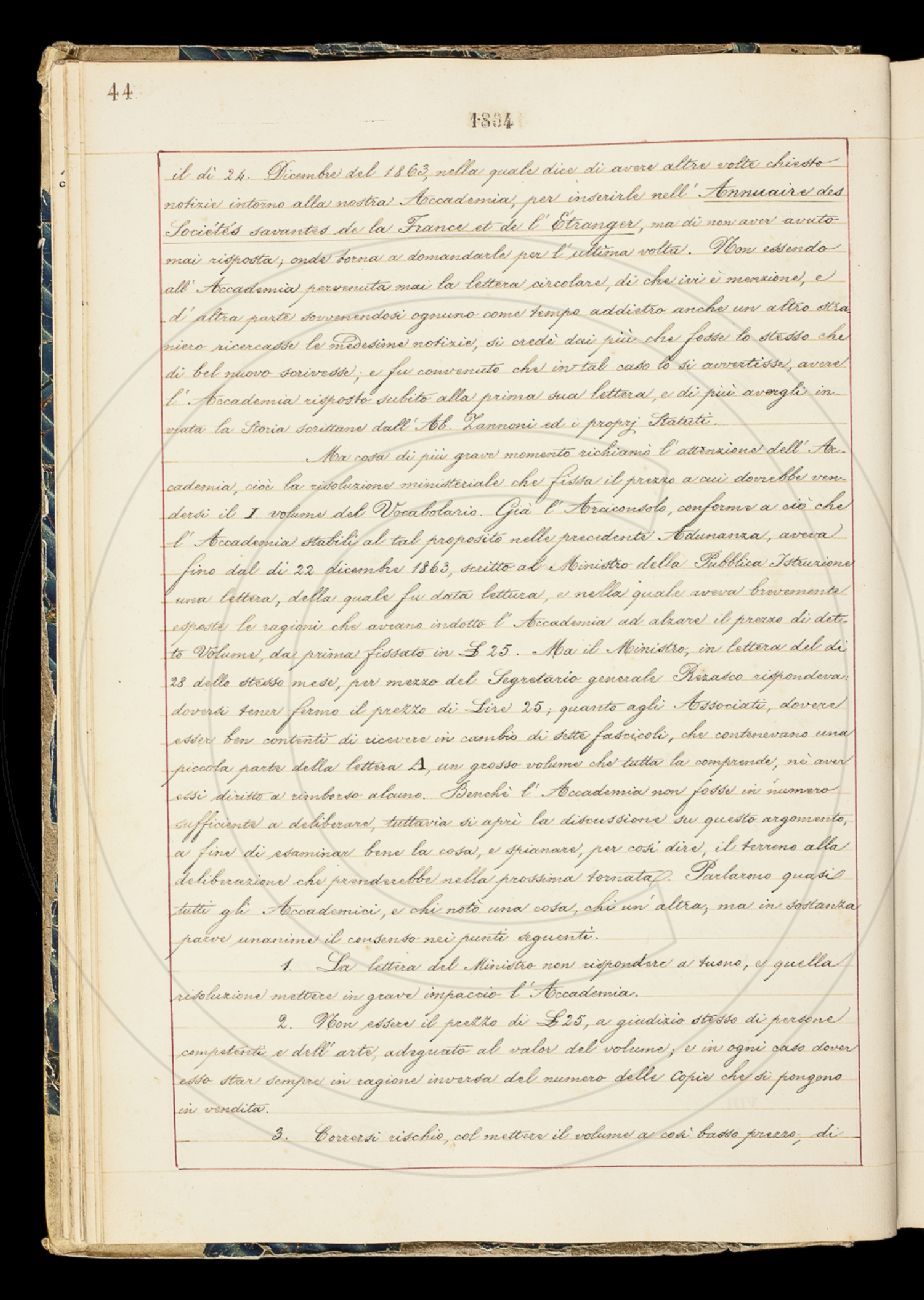 44
1864
il dì 24. Dicembre del 1863, nella quale dice di avere altre volte chiesto
notizie intorno alla nostra Accademia, per inserirle nell' Annuaire des
Sociétés savantes de la France et de l' Étranger, ma di non aver avuto
mai risposta; onde torna a domandarle per l' ultima volta. Non essendo
all' Accademia pervenuta mai la lettera circolare, di che ivi è menzione, e
d' altra parte sovvenendosi ognuno come tempo addietro anche un altro stra
niero ricercasse le medesime notizie, si credè dai più che fosse lo stesso che
di bel nuovo scrivesse; e fu convenuto che in tal caso lo si avvertisse, avere
l' Accademia risposto subito alla prima sua lettera, e di più avergli in
viata la Storia scrittane dall' Ab. Zannoni ed i proprj Statuti.
Ma cosa di più grave momento richiamò l' attenzione dell' Ac-
cademia, cioè la risoluzione ministeriale che fissa il prezzo a cui dovrebbe ven-
dersi il I volume del Vocabolario. Già l' Araconsolo, conforme a ciò che
l' Accademia stabilì al tal proposito nelle precedente Adunanza, aveva
fino dal dì 22 dicembre 1863, scritto al Ministro della Pubblica Istruzione
una lettera, della quale fu data lettura, e nella quale aveva brevemente
esposte le ragioni che aveano indotto l' Accademia ad alzare il prezzo di det-
to Volume, da prima fissato in £ 25. Ma il Ministro, in lettera del dì
28 dello stesso mese, per mezzo del Segretario generale Rezasco rispondeva:
doversi tener fermo il prezzo di Lire 25; quanto agli Associati, dovere
esser ben contenti di ricevere in cambio di sette fascicoli, che contenevano una
piccola parte della lettera A, un grosso volume che tutta la comprende, nè aver
essi diritto a rimborso alcuno. Benchè l' Accademia non fosse in numero
sufficiente a deliberare, tuttavia si aprì la discussione su questo argomento,
a fine di esaminar bene la cosa, e spianare, per così dire, il terreno alla
deliberazione che prenderebbe nella prossima tornata. Parlarono quasi
tutti gli Accademici, e chi notò una cosa, chi un' altra; ma in sostanza
parve unanime il consenso nei punti seguenti.
1. La lettera del Ministro non rispondere a tuono, e quella
risoluzione mettere in grave impaccio l' Accademia.
2. Non essere il prezzo di £ 25, a giudizio stesso di persone
competenti e dell' arte, adeguato al valor del volume; e in ogni caso dover
esso star sempre in ragione inversa del numero delle copie che si pongono
in vendita.
3. Corrersi rischio, col mettere il volume a così basso prezzo, di